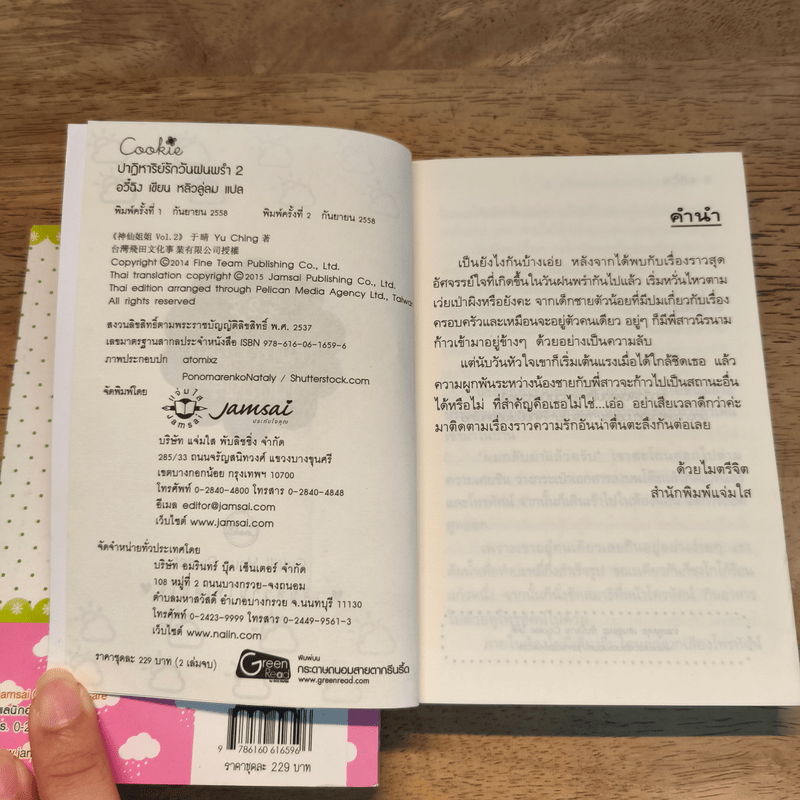 Cookie
ปาฏิหาริย์รักวันฝนพรำ 2
อวี๋ฉิง เขียน หลิวลู่ลม แปล
พิมพ์ครั้งที่ 1 กันยายน 2558 พิมพ์ครั้งที่ 2 กันยายน 2558
《神仙姐姐 Vol.2》 于晴 Yu Ching 著
台灣飛田文化事業有限公司授權
Copyright ©2014 Fine Team Publishing Co., Ltd.
Thai translation copyright ©2015 Jamsai Publishing Co., Ltd.
Thai edition arranged through Pelican Media Agency Ltd., Taiwan
All rights reserved
สงวนลิขสิทธิ์ตามพระราชบัญญัติลิขสิทธิ์ พ.ศ. 2537
เลขมาตรฐานสากลประจำหนังสือ ISBN 978-616-06-1659-6
ภาพประกอบปก atomixz
PonomarenkoNataly / Shutterstock.com
จัดพิมพ์โดย
แจ่มใส
JAMSAI
Jamsai
ประเทืองใจคุณ
บริษัท แจ่มใส พับลิชชิ่ง จำกัด
285/33 ถนนจรัญสนิทวงศ์ แขวงบางขุนศรี
เขตบางกอกน้อย กรุงเทพฯ 10700
โทรศัพท์ 0-2840-4800 โทรสาร 0-2840-4848
อีเมล editor@jamsai.com
เว็บไซต์ www.jamsai.com
จัดจำหน่ายทั่วประเทศโดย
บริษัท อมรินทร์ บุ๊ค เซ็นเตอร์ จำกัด
108 หมู่ที่ 2 ถนนบางกรวย-จงถนอม
ตำบลมหาสวัสดิ์ อำเภอบางกรวย จ.นนทบุรี 11130
โทรศัพท์ 0-2423-9999 โทรสาร 0-2449-9561-3
เว็บไซต์ www.naiin.com
ราคาชุดละ 229 บาท (2 เล่มจบ)
Green Read
พิมพ์บน
กระดาษถนอมสายตากรีนรี้ด
www.greenread.com
คำนำ
เป็นยังไงกันบ้างเอ่ย หลังจากได้พบกับเรื่องราวสุด
อัศจรรย์ใจที่เกิดขึ้นในวันฝนพรำกันไปแล้ว เริ่มหวั่นไหวตาม
เว่ยเป่าผิงหรือยังคะ จากเด็กชายตัวน้อยที่มีปมเกี่ยวกับเรื่อง
ครอบครัวและเหมือนจะอยู่ตัวคนเดียว อยู่ๆ ก็มีพี่สาวนิรนาม
ก้าวเข้ามาอยู่ข้างๆ ด้วยอย่างเป็นความลับ
แต่นับวันหัวใจเขาก็เริ่มเต้นแรงเมื่อได้ใกล้ชิดเธอ แล้ว
ความผูกพันระหว่างน้องชายกับพี่สาวจะก้าวไปเป็นสถานะอื่น
ได้หรือไม่ ที่สำคัญคือเธอไม่ใช่...เอ่อ อย่าเสียเวลาดีกว่าค่ะ
มาติดตามเรื่องราวความรักอันน่าตื่นตะลึงกันต่อเลย
ด้วยไมตรีจิต
สำนักพิมพ์แจ่มใส
9 786160 616596
ราคาชุดละ 229 บาท